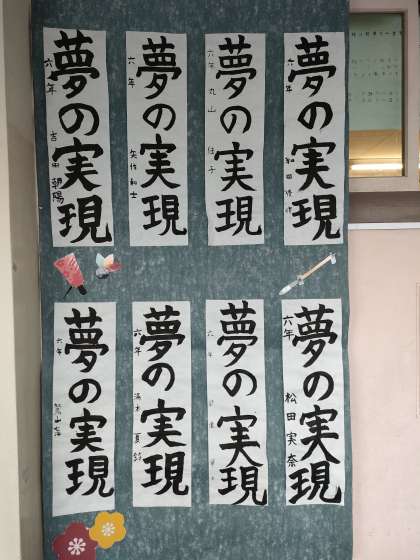 夢の実現
六年
夢の実現
六年 丸山
夢の実現
六年 矢作和士
夢の実現
六年 吉田朝陽
夢の実現
六年 松田実奈
夢の実現
六年
夢の実現
六年
夢の実現
六年